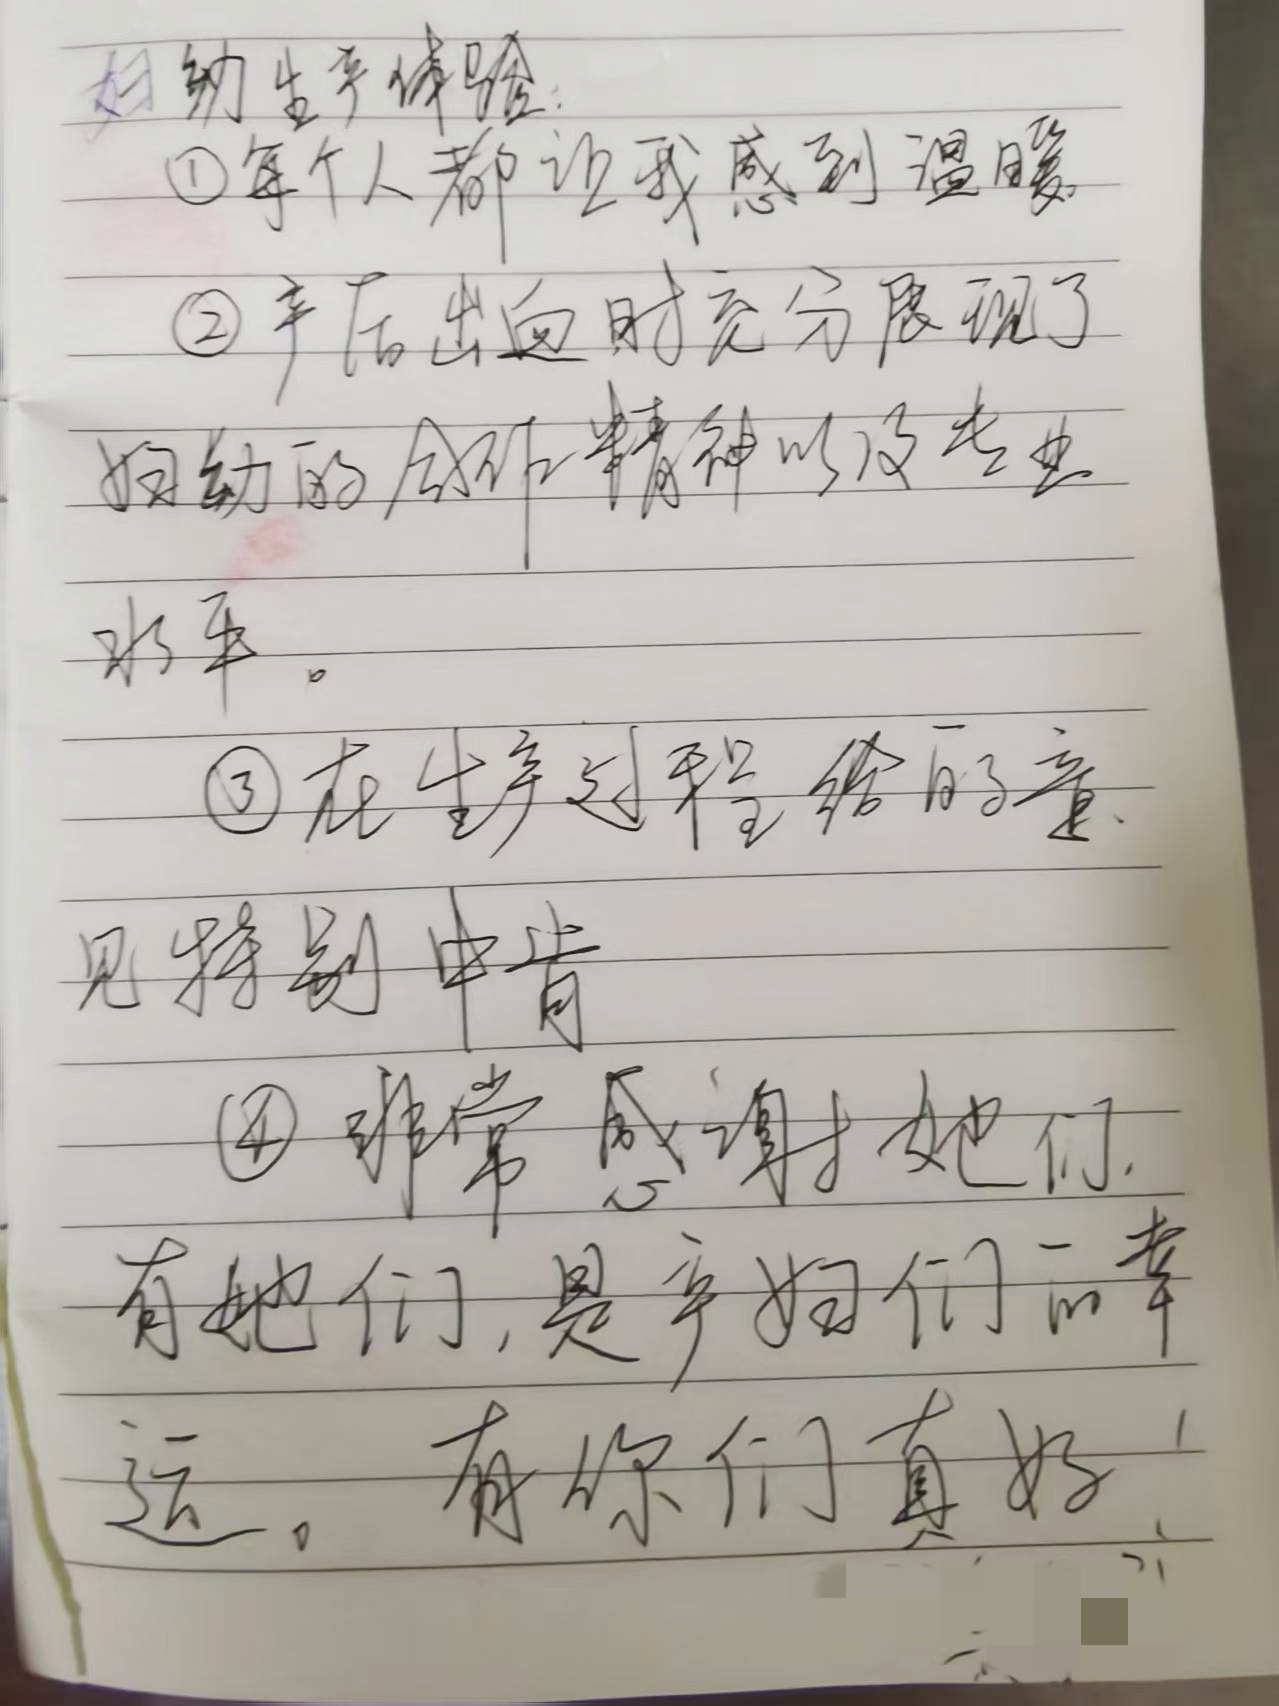 妇幼生产体验:
①每个人都让我感到温暖
②产后出血时充分展现了
妇幼的合作精神以及专业
水平。
③在生产过程给的意
见特别中肯
④非常感谢她们.
有她们,是产妇们的幸
运。有你们真好!